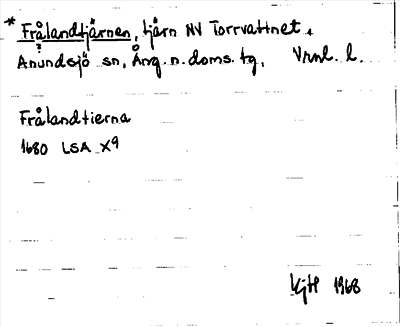 * Frålandtjärnen, tjärn NV Torrvattnet.
Anundsjö sn, Ång. n. doms. tg, Vrnl. l.
Frålandtierna
1680 LSA X9
KjH 1968